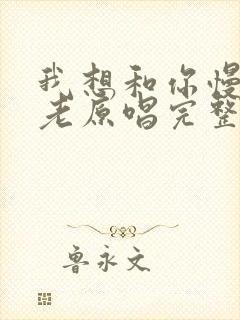 我想和你慢
老原唱完整
鲁永文